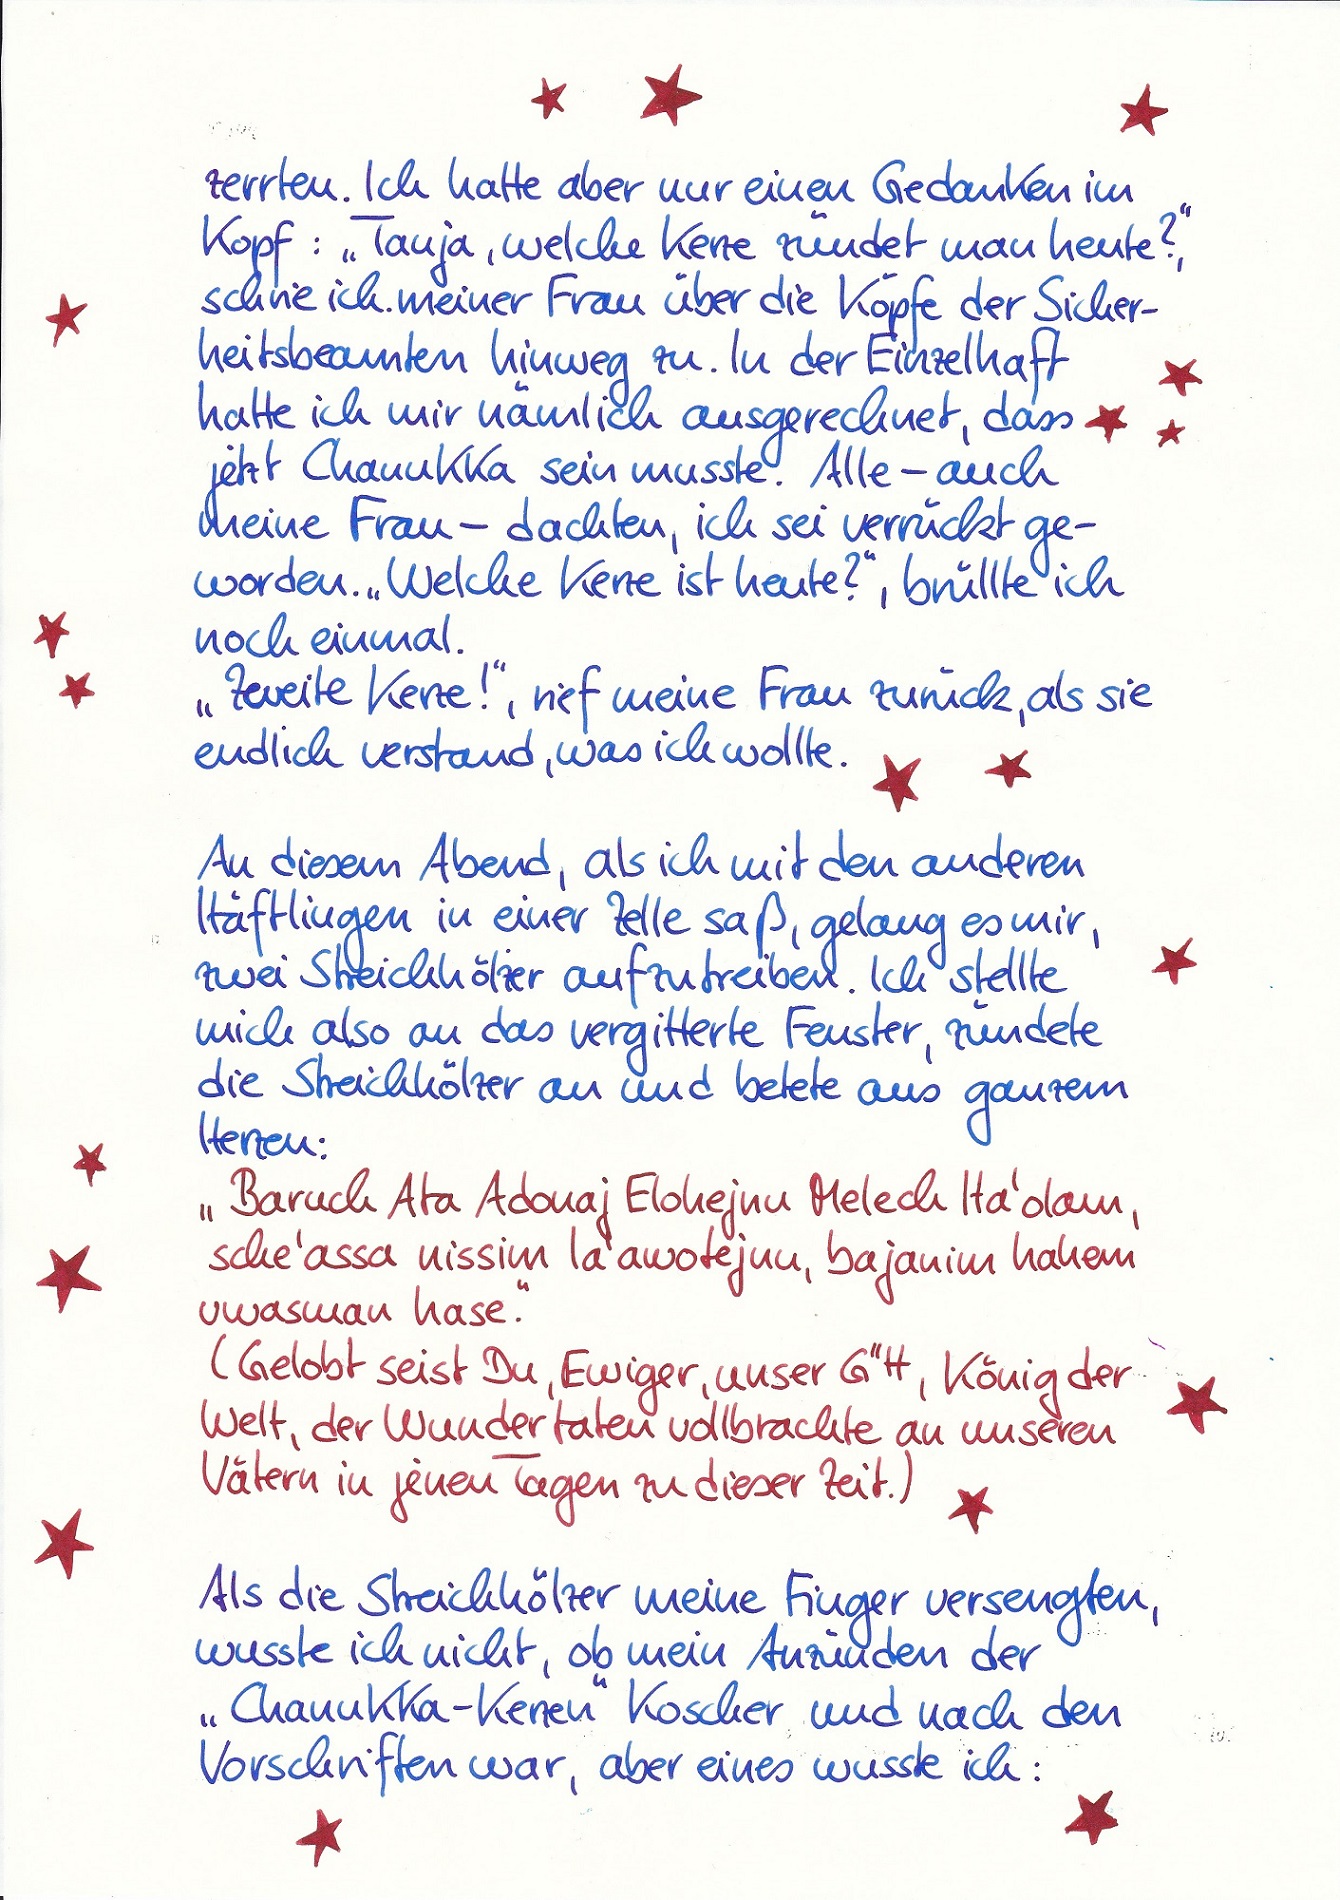 zerrten. Ich hatte aber nur einen Gedanken im
Kopf: „Tanja, welche Kerze zündet man heute?“,
schrie ich meiner Frau über die Köpfe der Sicher-
heitsbeamten hinweg zu. In der Einzelhaft
hatte ich mir nämlich ausgerechnet, dass
jetzt Chanukka sein musste. Alle – auch
meine Frau – dachten, ich sei verrückt ge-
worden. „Welche Kerze ist heute?“, brüllte ich
noch einmal.
„Zweite Kerze!“, rief meine Frau zurück, als sie
endlich verstand, was ich wollte.
An diesem Abend, als ich mit den anderen
Häftlingen in einer Zelle saß, gelang es mir,
zwei Streichhölzer aufzutreiben. Ich stellte
mich also an das vergitterte Fenster, zündete
die Streichhölzer an und betete aus ganzem
Herzen:
„Baruch Ata Adonaj Elohejnu Melech Ha'olam,
sche'assa nissim la'awotejnu, bajanim hahem
uwasman hase.“
(Gelobt seist Du, Ewiger, unser G“tt, König der
Welt, der Wundertaten vollbrachte an unseren
Vätern in jenen Tagen zu dieser Zeit.)
Als die Streichhölzer meine Finger versengten,
wusste ich nicht, ob mein Anzünden der
„Chanukka-Kerzen“ koscher und nach den
Vorschriften war, aber eines wusste ich: